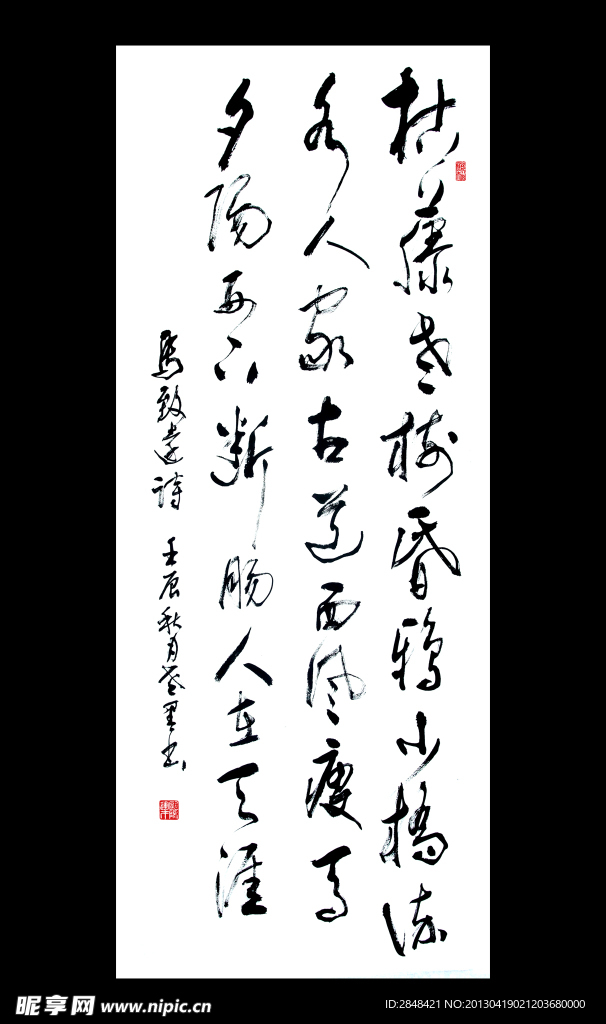 枯藤老樹昏鴉小橋流
水人家古道西風瘦馬
夕陽西下斷腸人在天涯
馬致遠詩 壬辰秋月書
昵享网 www.nipic.cn
ID:2848421 NO:20130419021203680000